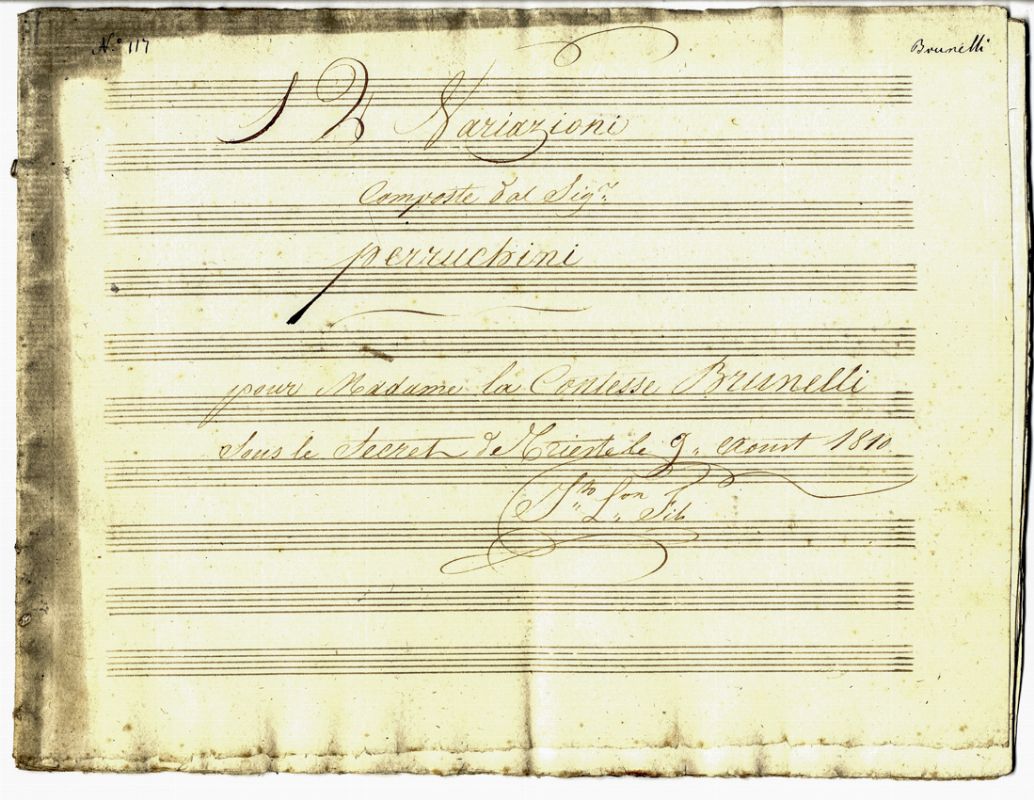 N.º 117
Brunelli
12 Variazioni
Composte dal Sig.r
Perruchini
pour Madame la Contesse Brunelli
Sous le Secret de Trieste le 9 Aoust 1810.